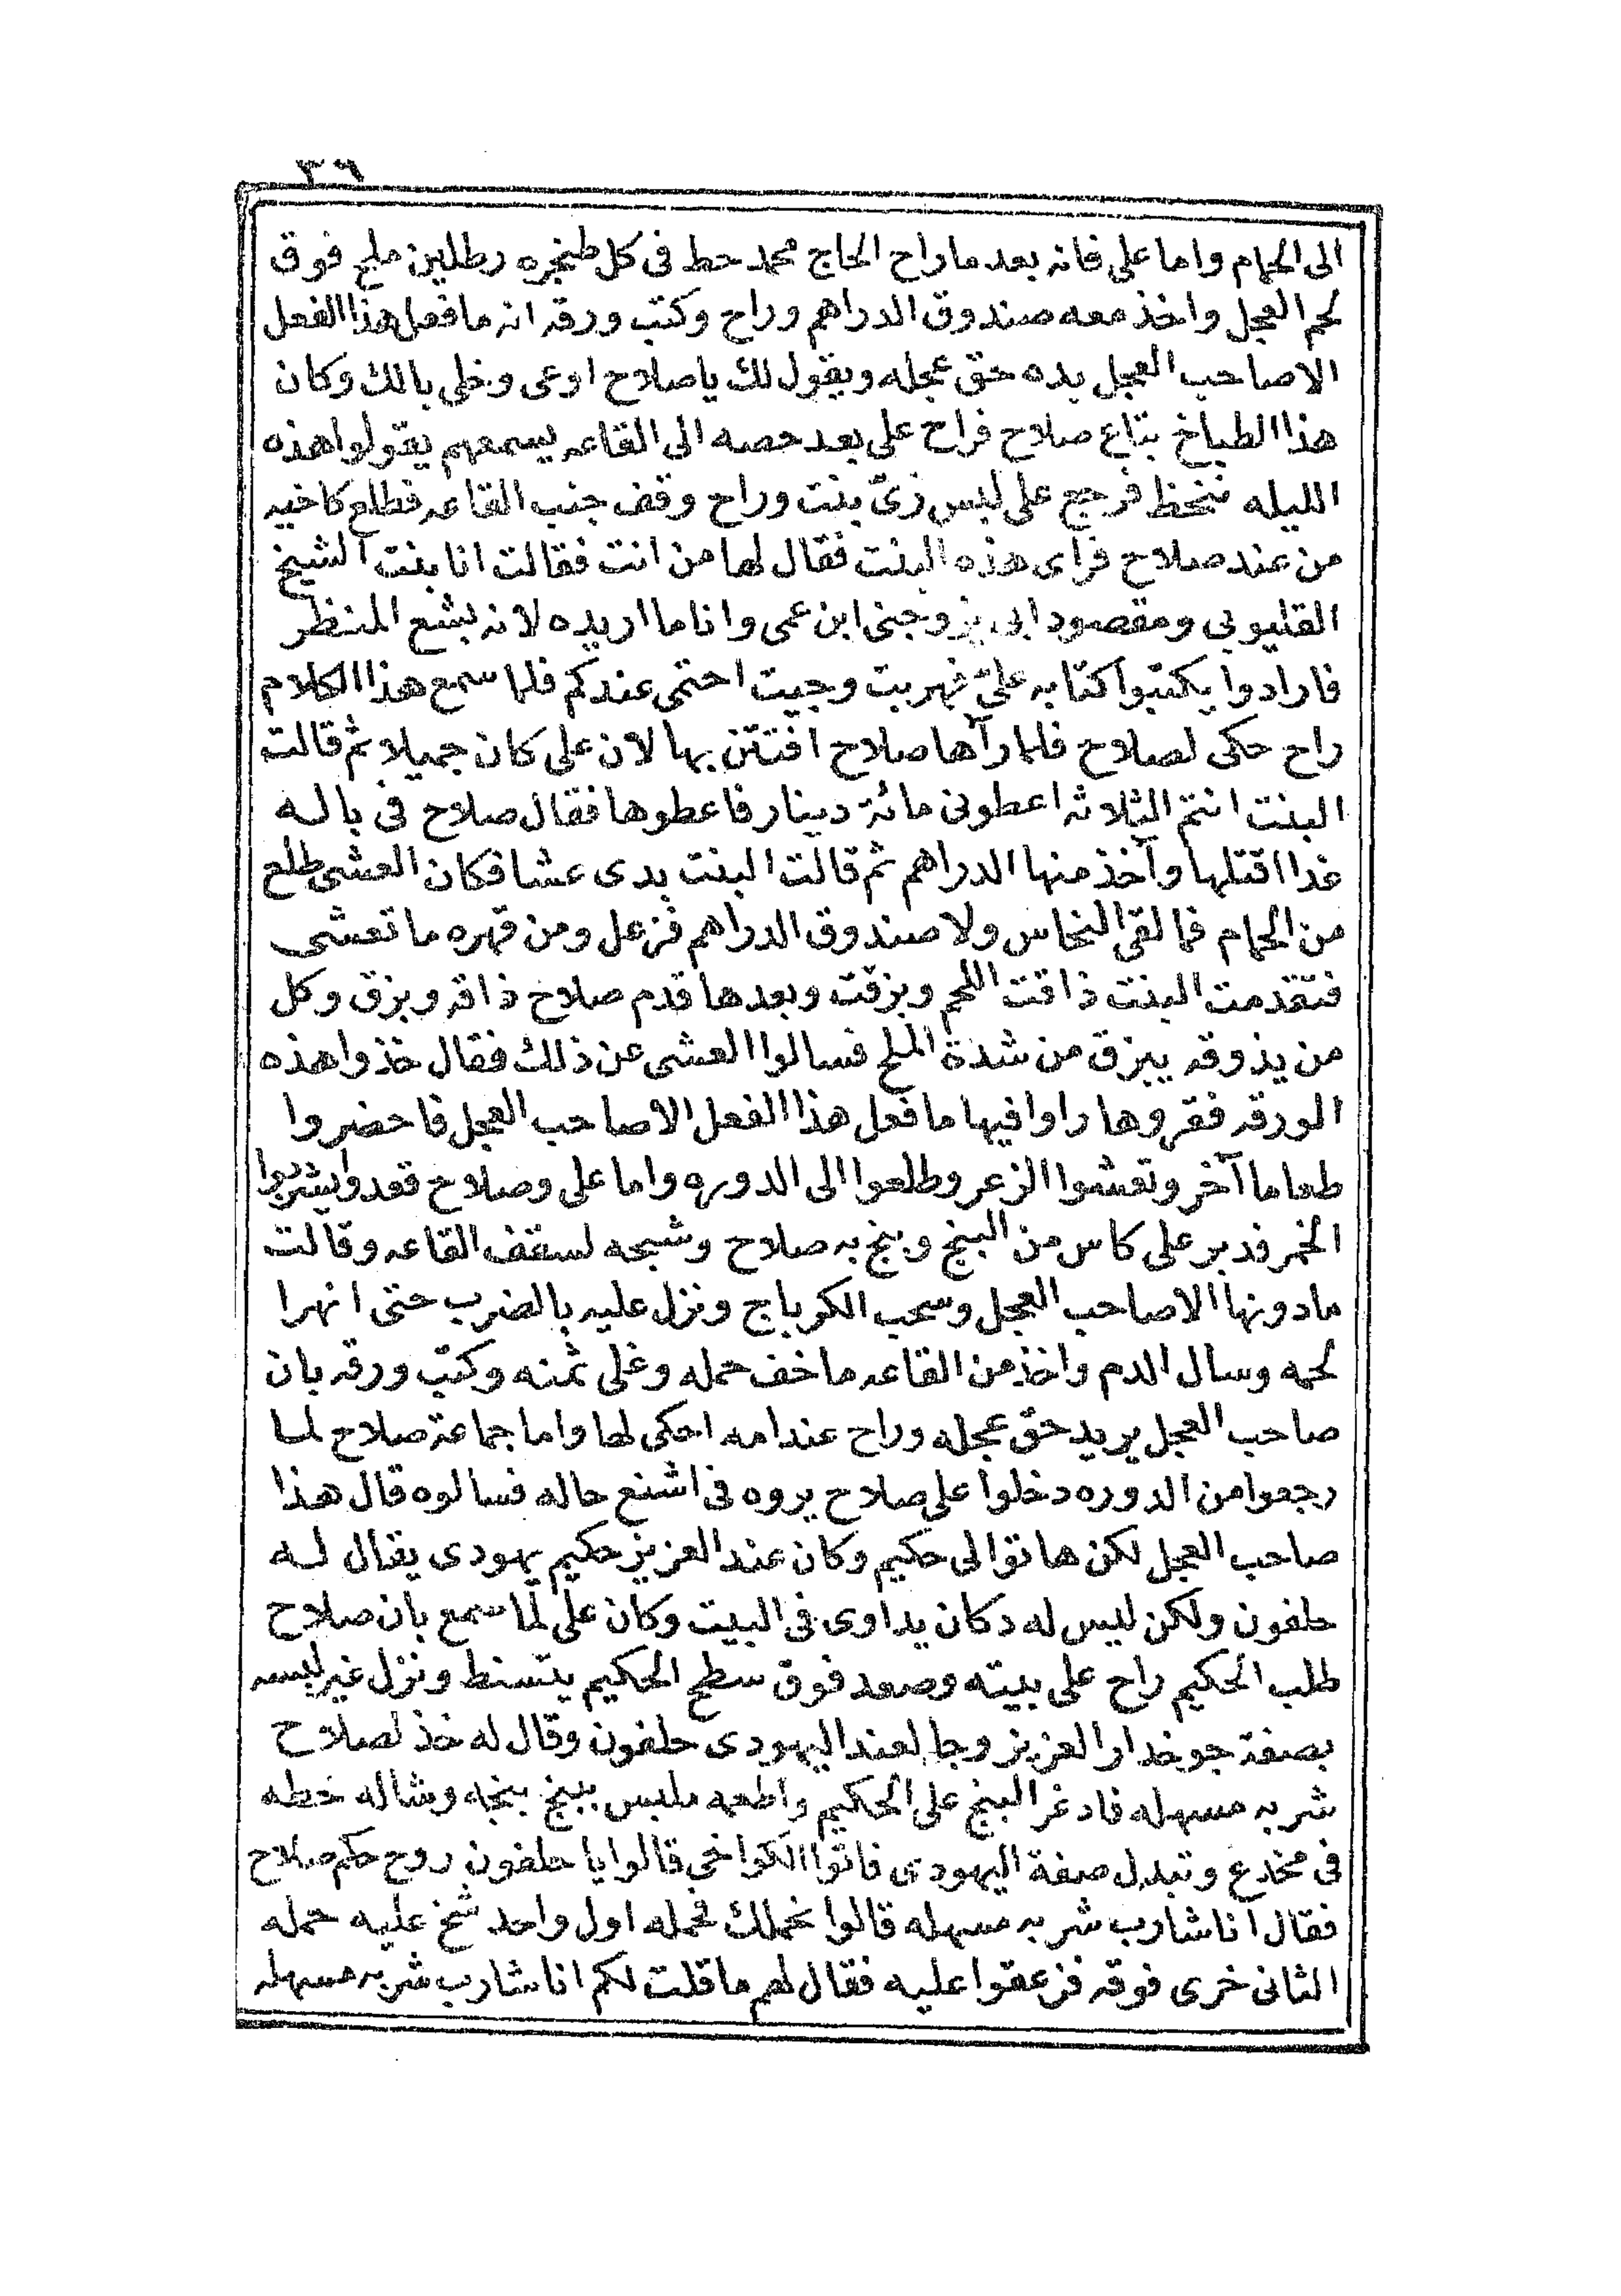 ٣٦
الى الحمام واما على فانه بعد ما راح الحاج محمد حط فى كل طنجره رطلين ملح فوق
لحم العجل واخذ معه صندوق الدراهم وراح وكتب ورقه انه ما فعل هذا الفعل
الا صاحب العجل بده حق عجله ويقول لك يا صلاح اوعى وخلى بالك وكان
هذا الطباخ بتاع صلاح فراح على بعد حصه الى القاعه يسمعهم يقولوا هذه
الليله ننحظ فرجع على لبس زىّ بنت وراح وقف جنب القاعه فطلع كاخيه
من عند صلاح فراى هذه البنت فقال لها من انت فقالت انا بنت الشيخ
القليوبى ومقصود ابى يزوجنى ابن عمى وانا ما اريده لانه بشع المنظر
فارادوا يكتبوا كتابه علىّ فهربت وجيت احتمى عندكم فلما سمع هذا الكلام
راح حكى لصلاح فلما رآها صلاح افتتن بها لان على كان جميلا ثم قالت
البنت انتم الثلاثه اعطونى مائة دينار فاعطوها فقال صلاح فى باله
غدا اقتلها وآخذ منها الدراهم ثم قالت البنت بدى عشا فكان العشى طلع
من الحمام فما لقى النحاس ولا صندوق الدراهم فزعل ومن قهره ما تعشى
فتقدمت البنت ذاقت اللحم وبزقت وبعدها قدم صلاح ذاقه وبزق وكل
من يذوقه يبزق من شدة الملح فسالوا العشى عن ذلك فقال خذوا هذه
الورقه فقروها راوا فيها ما فعل هذا الفعل الا صاحب العجل فاحضروا
طعاما آخر وتعشوا الزعر وطلعوا الى الدوره واما على وصلاح قعدوا يشربوا
الخمر فدبر على كاس من البنج وبنج به صلاح وشبحه لسقف القاعه وقالت
ما دونها الا صاحب العجل وسحب الكرباج ونزل عليه بالضرب حتى انهرا
لحمه وسال الدم واخذ من القاعه ما خف حمله وغلى ثمنه وكتب ورقه بان
صاحب العجل يريد حق عجله وراح عند امه احكى لها واما جماعة صلاح لما
رجعوا من الدوره دخلوا على صلاح يروه فى اشنع حاله فسالوه قال هذا
صاحب العجل لكن هاتوا لى حكيم وكان عند العزيز حكيم يهودى يقال له
حلفون ولكن ليس له دكان يداوى فى البيت وكان على لما سمع بان صلاح
طلب الحكيم راح على بيته وصعد فوق سطح الحكيم يتسنط ونزل غير لبسه
بصفة جوخدار العزيز وجا لعند اليهودى حلفون وقال له خذ لصلاح
شربه مسهله فادغر البنج على الحكيم واطعمه ملبس ببنج بنجه وشاله حطه
فى مخدع وتبدل صفة اليهودى فاتوا الكواخى قالوا يا حلفون روح حكم صلاح
فقال انا شارب شربه مسهله قالوا نحملك فحمله اول واحد شخ عليه حمله
الثانى خرى فوقه فزعقوا عليه فقال لهم ما قلت لكم انا شارب شربه مسهله